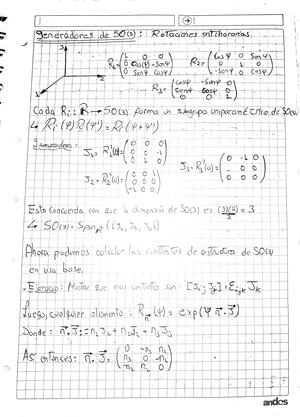 Generadores de SO(3): Rotaciones ortogonales.
z
R₁ = (1 0 0 / 0 cosψ -senψ / 0 senψ cosψ) R₂ = (cosψ 0 senψ / 0 1 0 / -senψ 0 cosψ)
R₃ = (cosψ -senψ 0 / senψ cosψ 0 / 0 0 1)
Cada Rᵢ: ℝ → SO(3) forma un subgrupo uniparamétrico de SO(3)
↳ Rᵢ(ψ) Rᵢ(ψ') = Rᵢ(ψ+ψ')
Generadores:
J₁ = R₁'(0) = (0 0 0 / 0 0 -1 / 0 1 0) J₃ = R₃'(0) = (0 -1 0 / 1 0 0 / 0 0 0)
J₂ = R₂'(0) = (0 0 1 / 0 0 0 / -1 0 0)
Esto concuerda con que la dimensión de SO(3) es (3)(2)/2 = 3
↳ SO(3) = Spanℝ({J₁, J₂, J₃})
Ahora podemos calcular las constantes de estructura de SO(3)
en esa base.
• Ejercicio: Mostrar que esas constantes son: [Jᵢ, Jⱼ] = εᵢⱼₖ Jₖ
Luego, cualquier elemento: R_n(ψ) = exp(ψ n⃗·J⃗)
Donde: n⃗·J⃗ = n₁J₁ + n₂J₂ + n₃J₃
Así entonces: n⃗·J⃗ = (0 -n₃ n₂ / n₃ 0 -n₁ / -n₂ n₁ 0)
andes